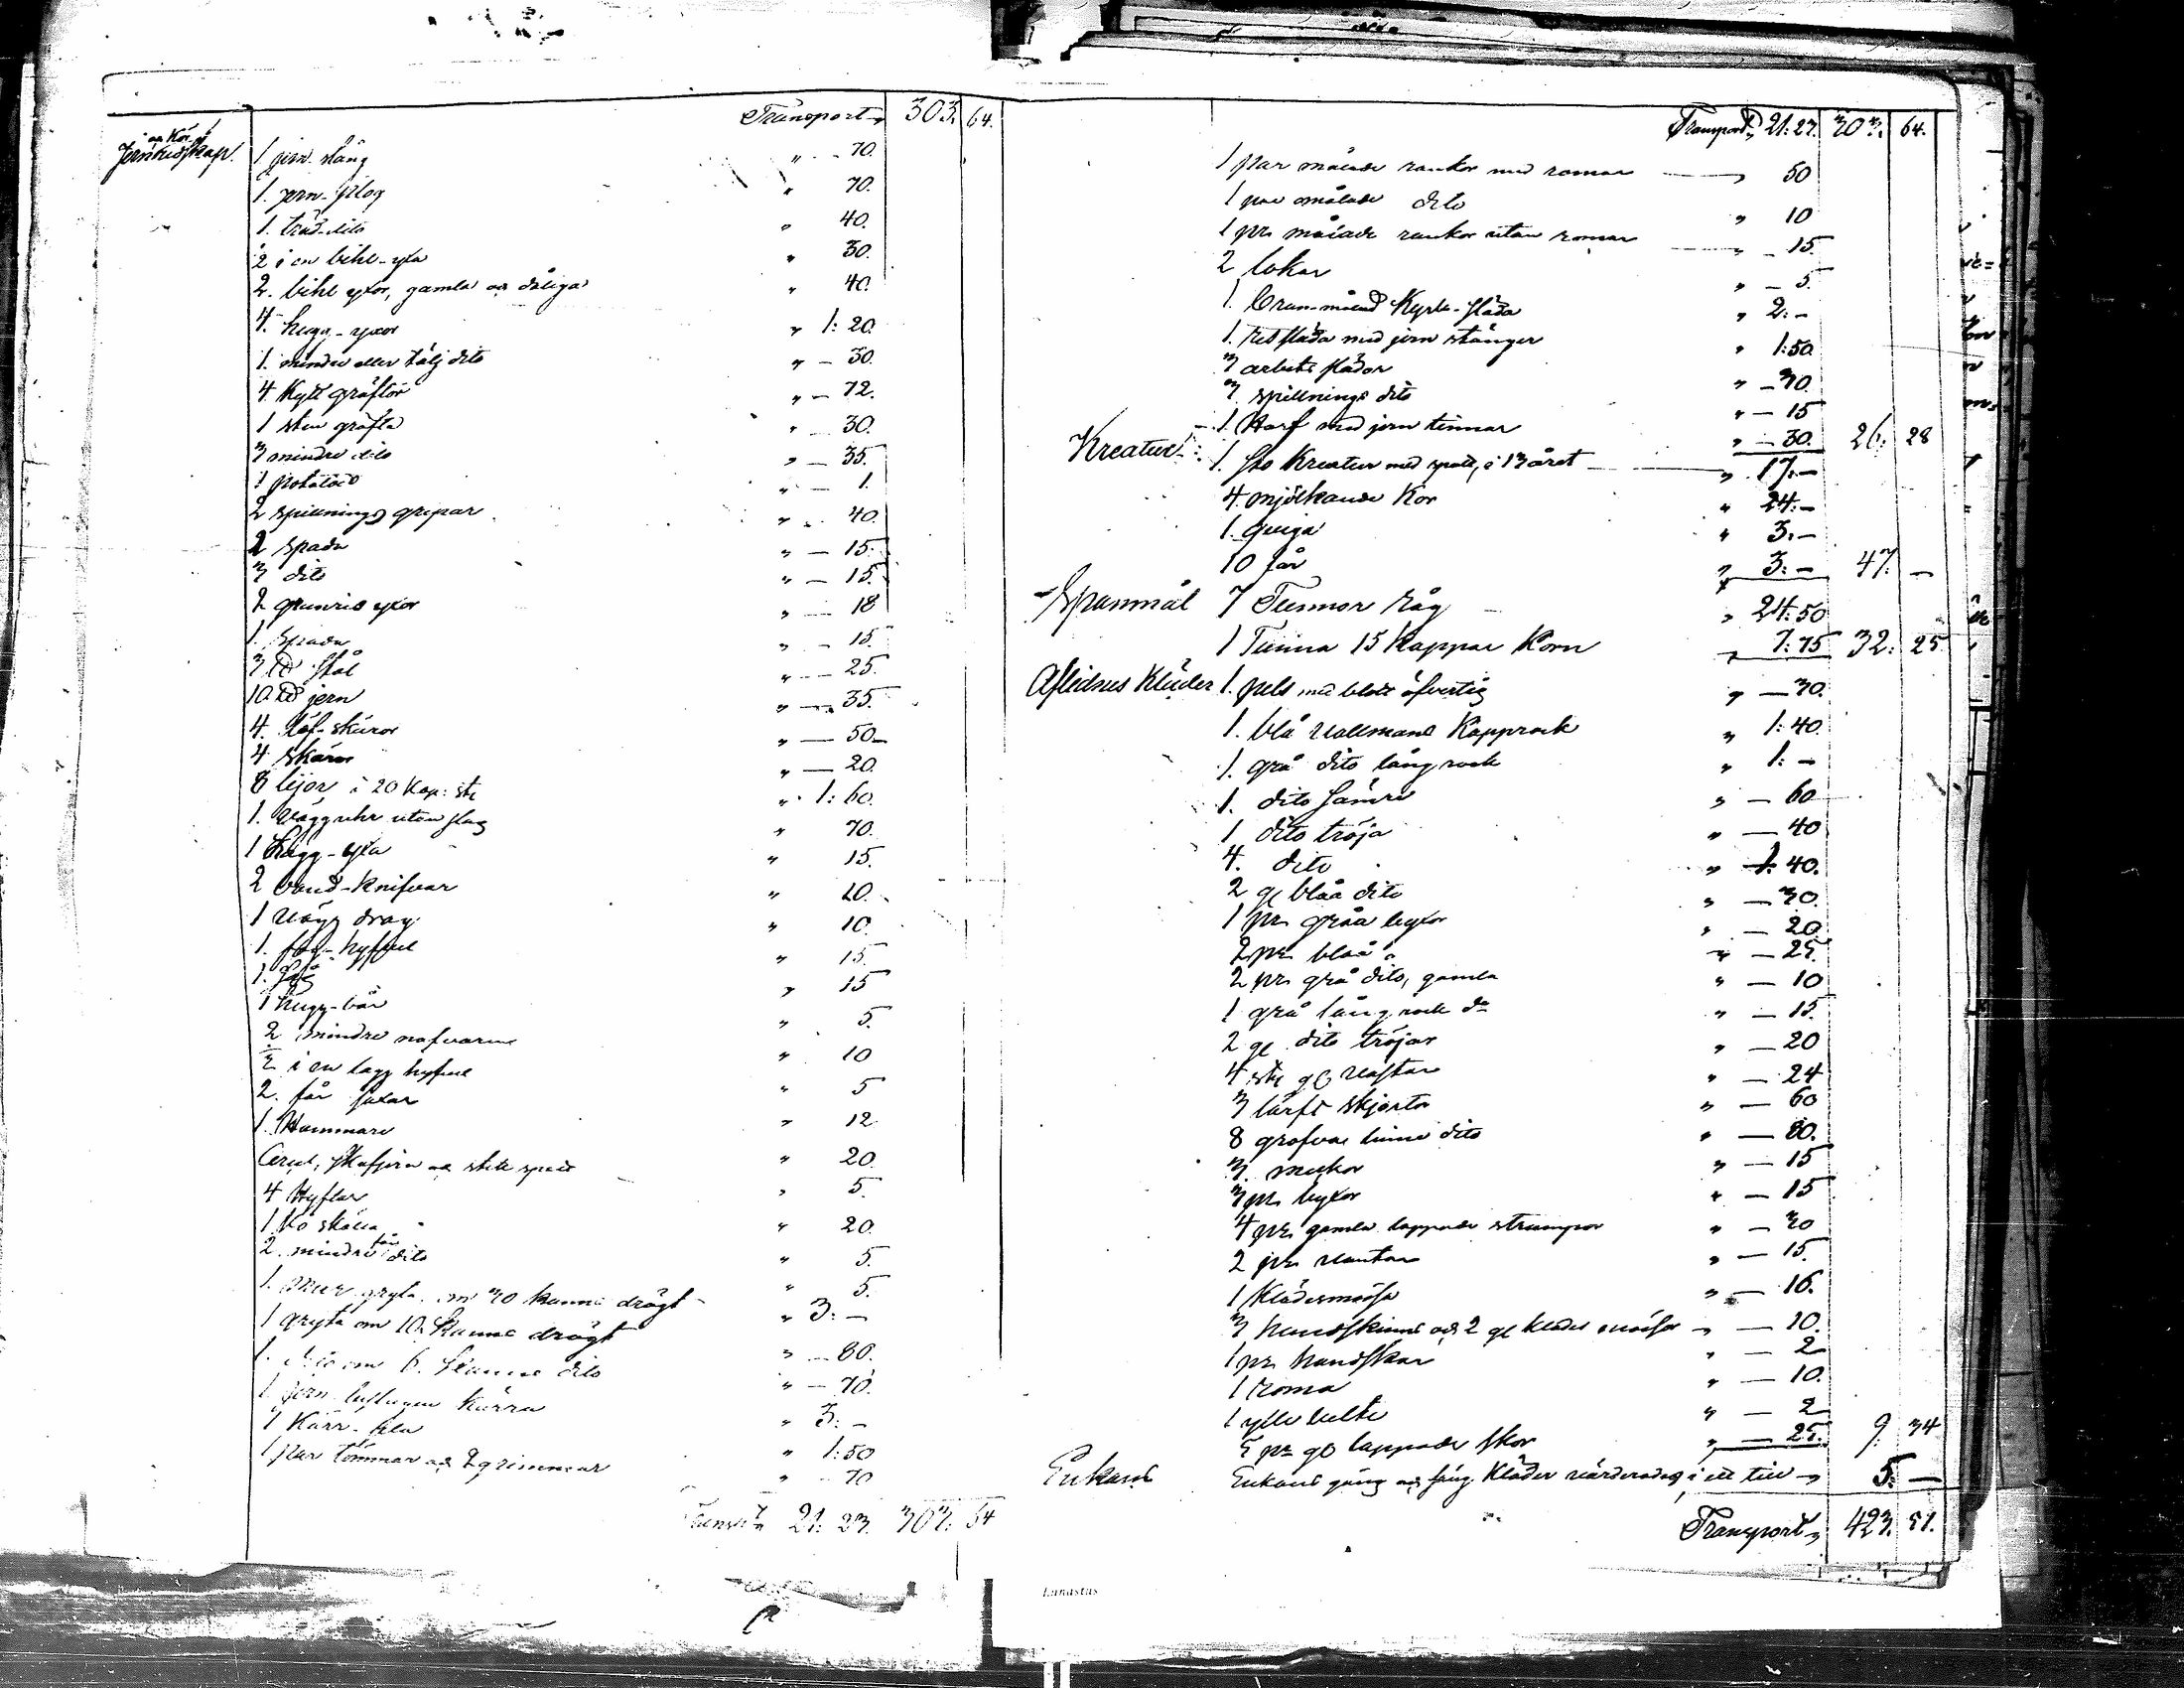 Transport 303. 64.
och Kör
Jernredskap. 1 jern-stång " 70.
1. jern-plog " 70.
1. träd-dito " 40.
½ i en bihl-yxa " 30.
2. bihl yxor, gamla och dåliga " 40.
4. hugg-yxor " 1: 20.
1. mindre eller tälj dito " – 30.
4 Kytt gräftor " – 72.
1 sten gräfta " – 30.
3 mindre dito " – 35.
1 potatos " – 1.
2 spillnings grepar " – 40.
2 spadar " – 15.
3 dito " – 15.
2 granris yxor " – 18
1. Spada " – 15.
3 ℔ Stål " – 25.
10 ℔ jern " – 35.
4. löf-skäror " – 50
4 skäror " – 20.
8 lijor, à 20 Kop: st " 1: 60.
1. vägguhr utan slag " 70.
1 Lagg-yxa " 15.
2 band-knifvar " 20.
1 vägg drag " 10.
1. hyffvel " 15.
1. Såg " 15
1 hugg-bår " 5.
2 mindre nafvarne " 10
½ i en lagg hyfvel " 5
2. får saxar " 12
1. Hammare " 20.
skafjern och " 5.
4 Hyflar " 20.
1 Ko skälla " 5.
2. mindre får dito " 5.
1. Mur gryta om 30 kannu drägt " 3: –
1 gryta om 10. Kannu drägt " – 80.
1. dito om 6. Kannu dito " – 70.
1 jern kärra " 3: –
1 Kärr " 1:50
1 par tömmar och 2 grimmor " 70
Transport 21: 23. 303: 64
Transport 21: 23. 303. 64.
1 par målade rankor med romar " 50
1 par omålade dito " 10
1 par målade rankor utan romar " – 15.
2 lokar " – 5.
1. Brun-målad Kyrk-släda " 2: –
1. ressläda med jern stänger " 1:50.
3 arbets slädor " – 30.
3. spillnings dito " – 15
1. Harf med jern tinnar " – 30. 26: 28
Kreatur 1. Sto Kreatur med spatt, i 13 året " 17. –
4 mjölkande Kor " 24: –
1. qviga " 3. –
10 får " 3: – 47: –
Spanmål 7 Tunnor råg " 24:50
1 Tunna 15 Kappar Korn " 7:75 32: 25
Aflidnes Kläder 1. pels med blått öfvertig " – 30.
1. blå vallmans Kapprock " 1: 40.
1. grå dito långrock " 1: –
1. dito sämre " – 60
1 dito tröja " – 40
4. dito " 40.
2 gl blåa dito " – 30.
1 par gråa byxor " – 20
2 par blåa " – 25.
2 par grå dito, gamla " – 10
1 grå långrock do " – 15.
2 gl dito tröjor " – 20
4 st gl västar " – 24
3 lärft skjortor " – 60
8 grofva linne dito " – 80.
3. " – 15
3 par byxor " – 15
4 par gamla lappade strumpor " – 20
2 par vantar " – 15.
1 Klädesmössa " – 16.
3 handskinns och 2 gl klädes mössor " – 10.
1 par handskar " – 2
1 roma " – 10.
1 ylle bälte " – 2
5 par gl lappade skor " – 25. 9: 34
Enkans Enkans gång och säng Kläder värderades i ett till " 5. –
Transport 423. 51.
Lunastus